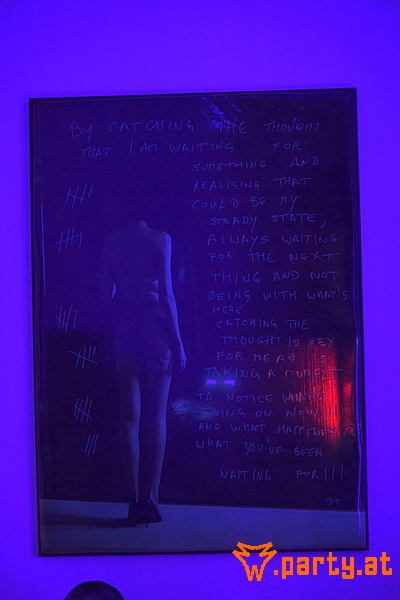 BY CATCHING THE THOUGHT
THAT I AM WAITING FOR
SOMETHING AND
REALISING THAT
COULD BE MY
STEADY STATE,
ALWAYS WAITING
FOR THE NEXT
THING AND NOT
BEING WITH WHAT'S
HERE
CATCHING THE
THOUGHT IS KEY
FOR ME AS
TAKING A MOMENT
TO NOTICE WHAT'S
GOING ON NOW
AND WHAT HAPPENS
WHAT YOU'VE BEEN
WAITING FOR!!!
w.party.at